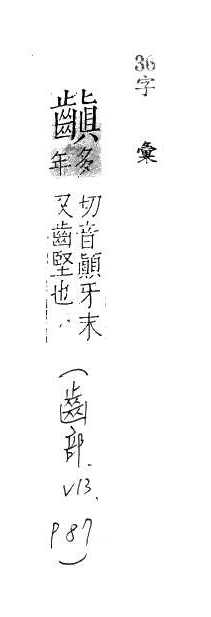 36字彙
齻多
年
切音顚牙末
又齒堅也
(齒部.
V13.
P87)